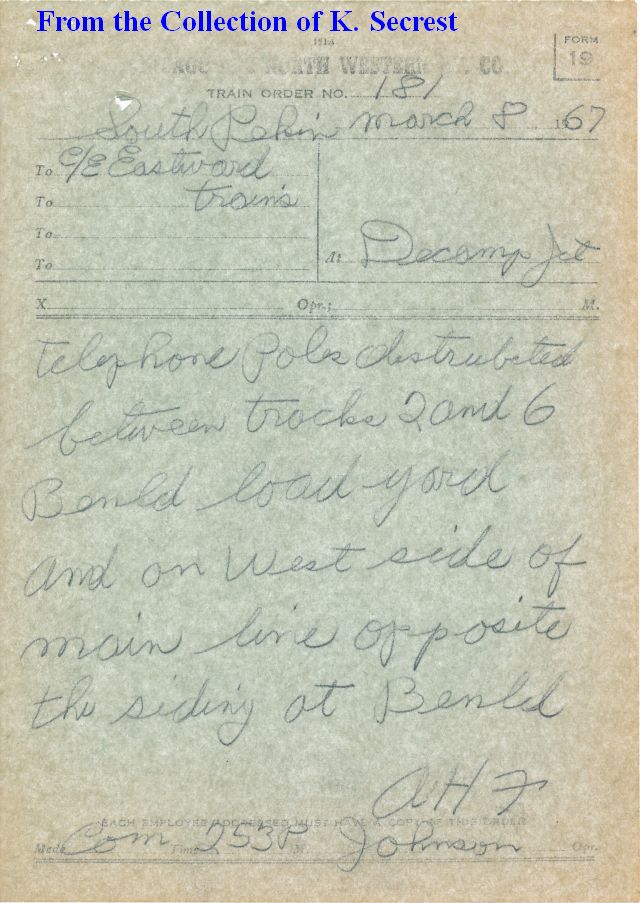 From the Collection of K. Secrest
FORM
19
NORTH WESTERN RY. CO.
TRAIN ORDER NO. 181
South Pekin March 8 1967
To C/E Eastward
To trains
To
To
At Decamp Jct
X Opr.; M.
telephone Poles distrubeted
between tracks 2 and 6
Benld load yard
and on West side of
main line opposite
the siding at Benld
AHF
EACH EMPLOYE ADDRESSED MUST HAVE A COPY OF THIS ORDER
Made Com Time 253P M. Johnson Opr.